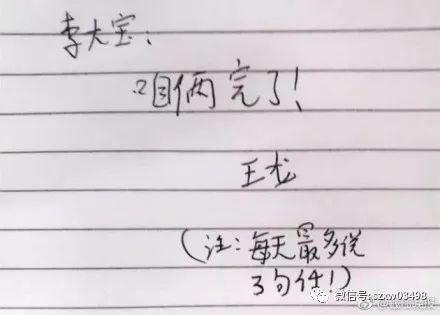 李大宝:
咱俩完了!
王龙
(注:每天最多说
3句话!)
微信号: szxw03498